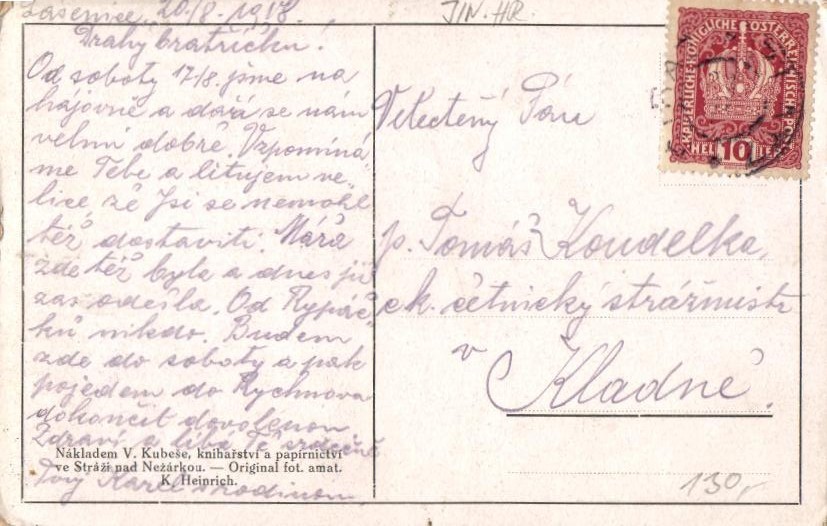 Lásenice, 20/8. 1918.
Drahy bratříčku!
Od soboty 17/8. jsme na
hájovně a daří se nám
velmi dobře. Vzpomíná
me Tebe a litujem ve-
lice, že Jsi se nemohl
též dostaviti. Mářa
zde též byla a dnes již
zas odešla. Od Rypáč-
ků nikdo. Budem
zde do soboty a pak
pojedem do Rychnova
dokončit dovolenou
Zdraví a líbá Tě srdečně
Tvůj Karel s rodinou.
Nákladem V. Kubeše, knihařství a papírnictví
ve Stráži nad Nežárkou. — Original fot. amat.
K. Heinrich.
JIN. HR.
KAISERLICHE KÖNIGLICHE ÖSTERREICHISCHE POST
HELLER 10
Veletěný Páu
p. Tomáš Koudelka,
ck. četnický strážmistr
v
Kladně.
130,-